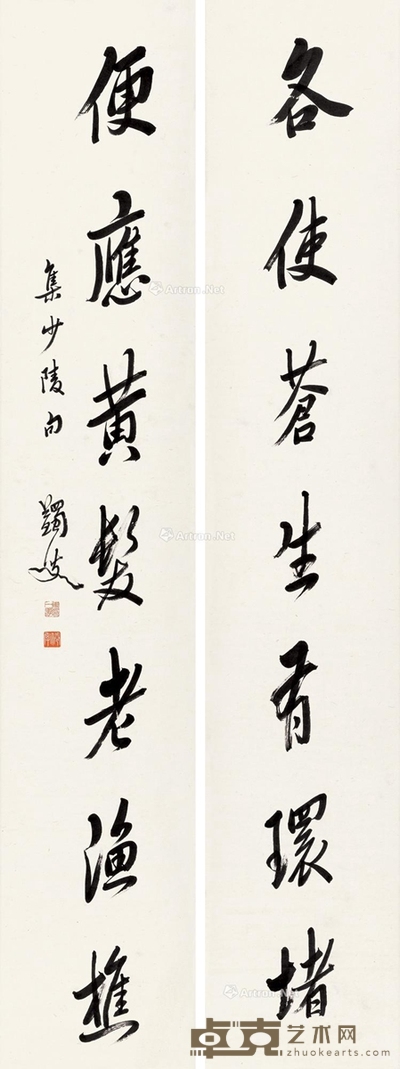 各使蒼生有環堵
便應黃髮老漁樵
集少陵句
蠲叟
Artron.Net
Artron.Net
Artron.Net
Artron.Net
卓克艺术网
zhuokearts.com